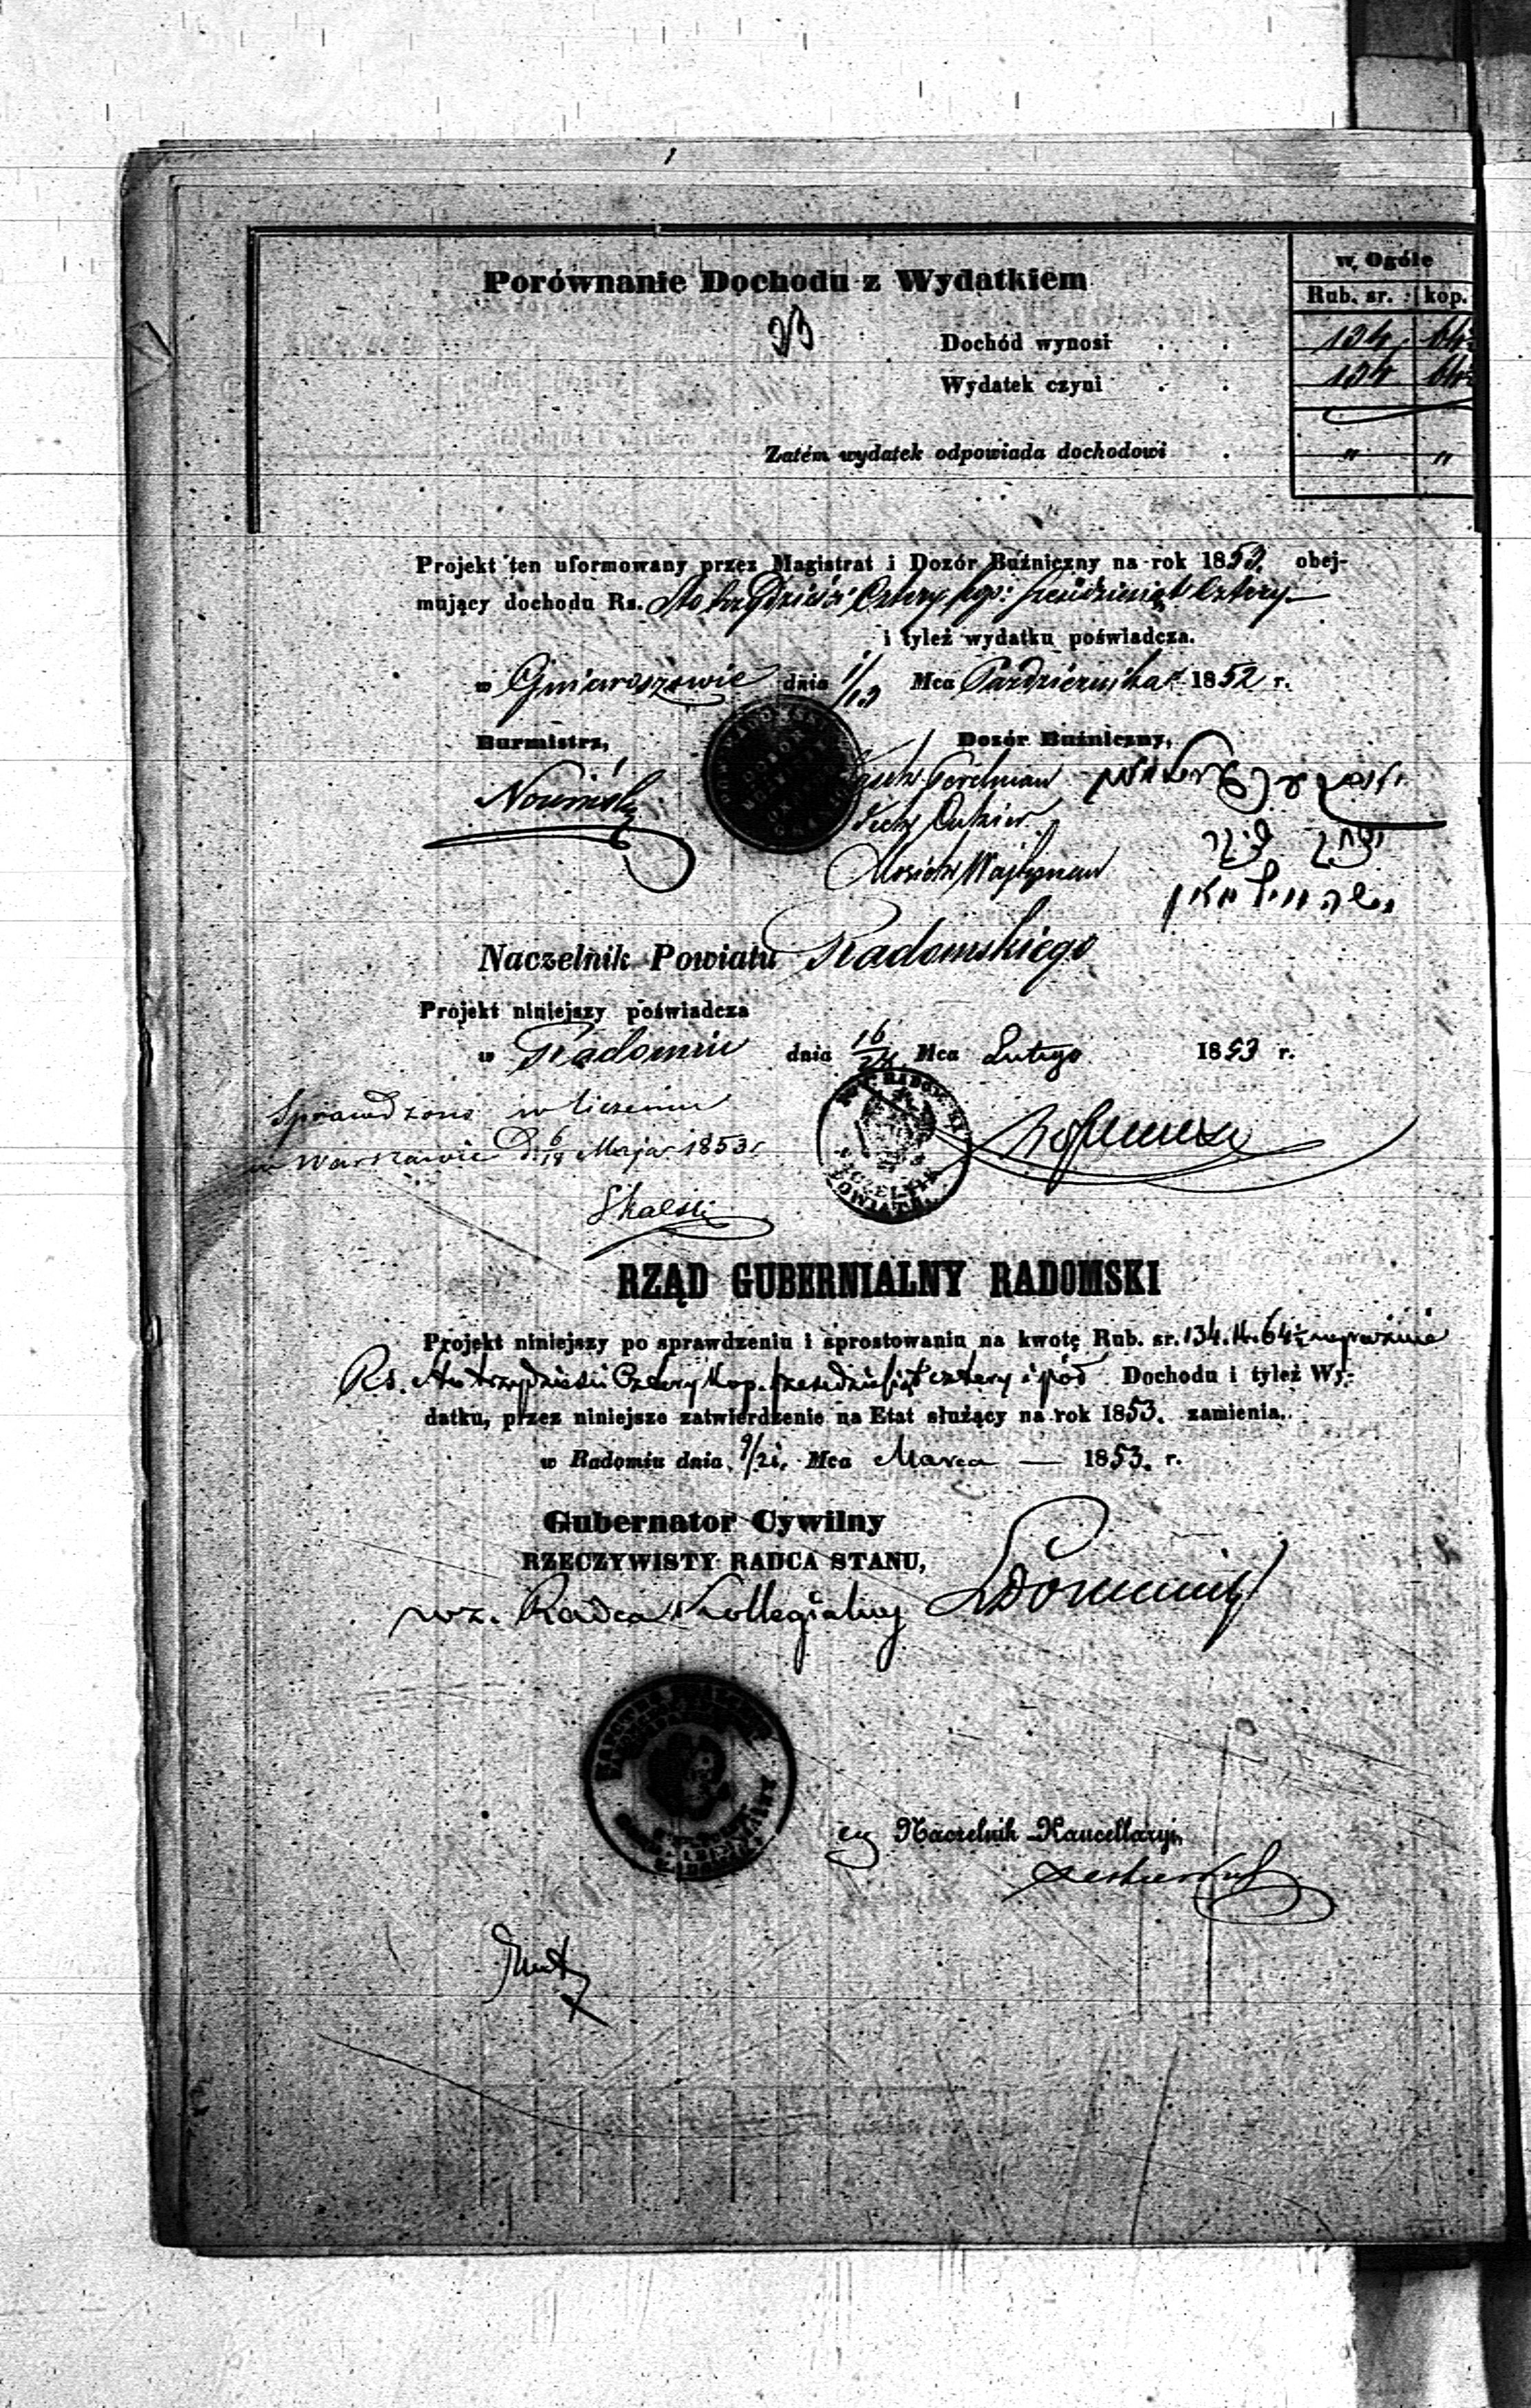 Porównanie Dochodu z Wydatkiem
w Ogóle
Rub. sr. kop.
Dochód wynosi . . 134 64½
Wydatek czyni . . 134 64½
Zatém wydatek odpowiada dochodowi . " "
Projekt ten uformowany przez Magistrat i Dozór Buźniczny na rok 1853. obej-
mujący dochodu Rs. Sto trzydzieści Cztery kop: sześćdziesiąt Cztery
i tyleż wydatku poświadcza.
w Gniewoszowie dnia 1/13 Mca Pazdziernika 1852 r.
Burmistrz,
Dozór Buźniczny,
Cukier
יצחק צוקר
משה
Naczelnik Powiatu Radomskiego
Projekt niniejszy poświadcza
w Radomiu dnia 16/28 Mca Lutego 1853 r.
Sprawdzono w liczeniu
w Warszawie D. 6/18 Maja 1853 r.
Skalski
RZĄD GUBERNIALNY RADOMSKI
Projekt niniejszy po sprawdzeniu i sprostowaniu na kwotę Rub. sr. 134. k. 64½ wyraźnie
Rs. Sto trzydzieści Cztery kop. sześćdziesiąt cztery i pół Dochodu i tyleż Wy-
datku, przez niniejsze zatwierdzenie na Etat służący na rok 1853. zamienia.
w Radomiu dnia 9/21. Mca Marca — 1853. r.
Gubernator Cywilny
RZECZYWISTY RADCA STANU,
wz. Radca Kollegialny
Naczelnik Kancellaryi,